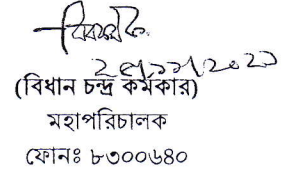 (বিধান চন্দ্র কর্মকার)
মহাপরিচালক
ফোনঃ ৮৩০০৬৪০